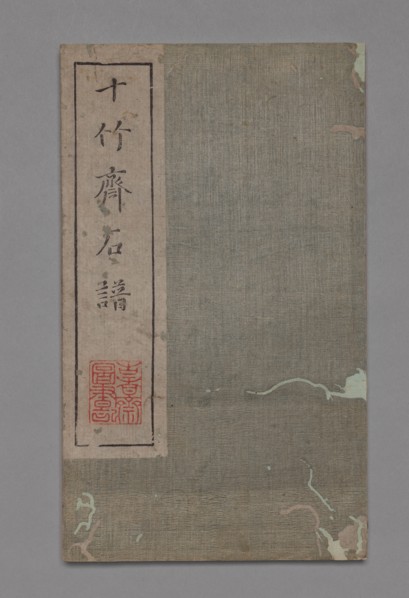 十竹齊石譜